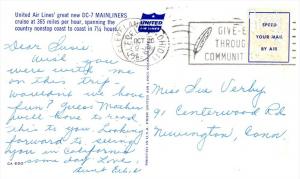 United Air Lines' great new DC-7 MAINLINERS
cruise at 365 miles per hour, spanning the
country nonstop coast to coast in 7½ hours.
UNITED
AIR LINES
OHIO
GIVE
THROUGH
COMMUNIT
SPEED
YOUR MAIL
BY AIR
Dear Susie,
Wish you
were with
me on
this trip-
wouldn't we have
fun? Guess Mother
will have to read
this to you. Looking
forward to seeing
you in California
some day. Love,
Aunt
Miss Sue Verby
91 Centerwood Rd
Newington, Conn.